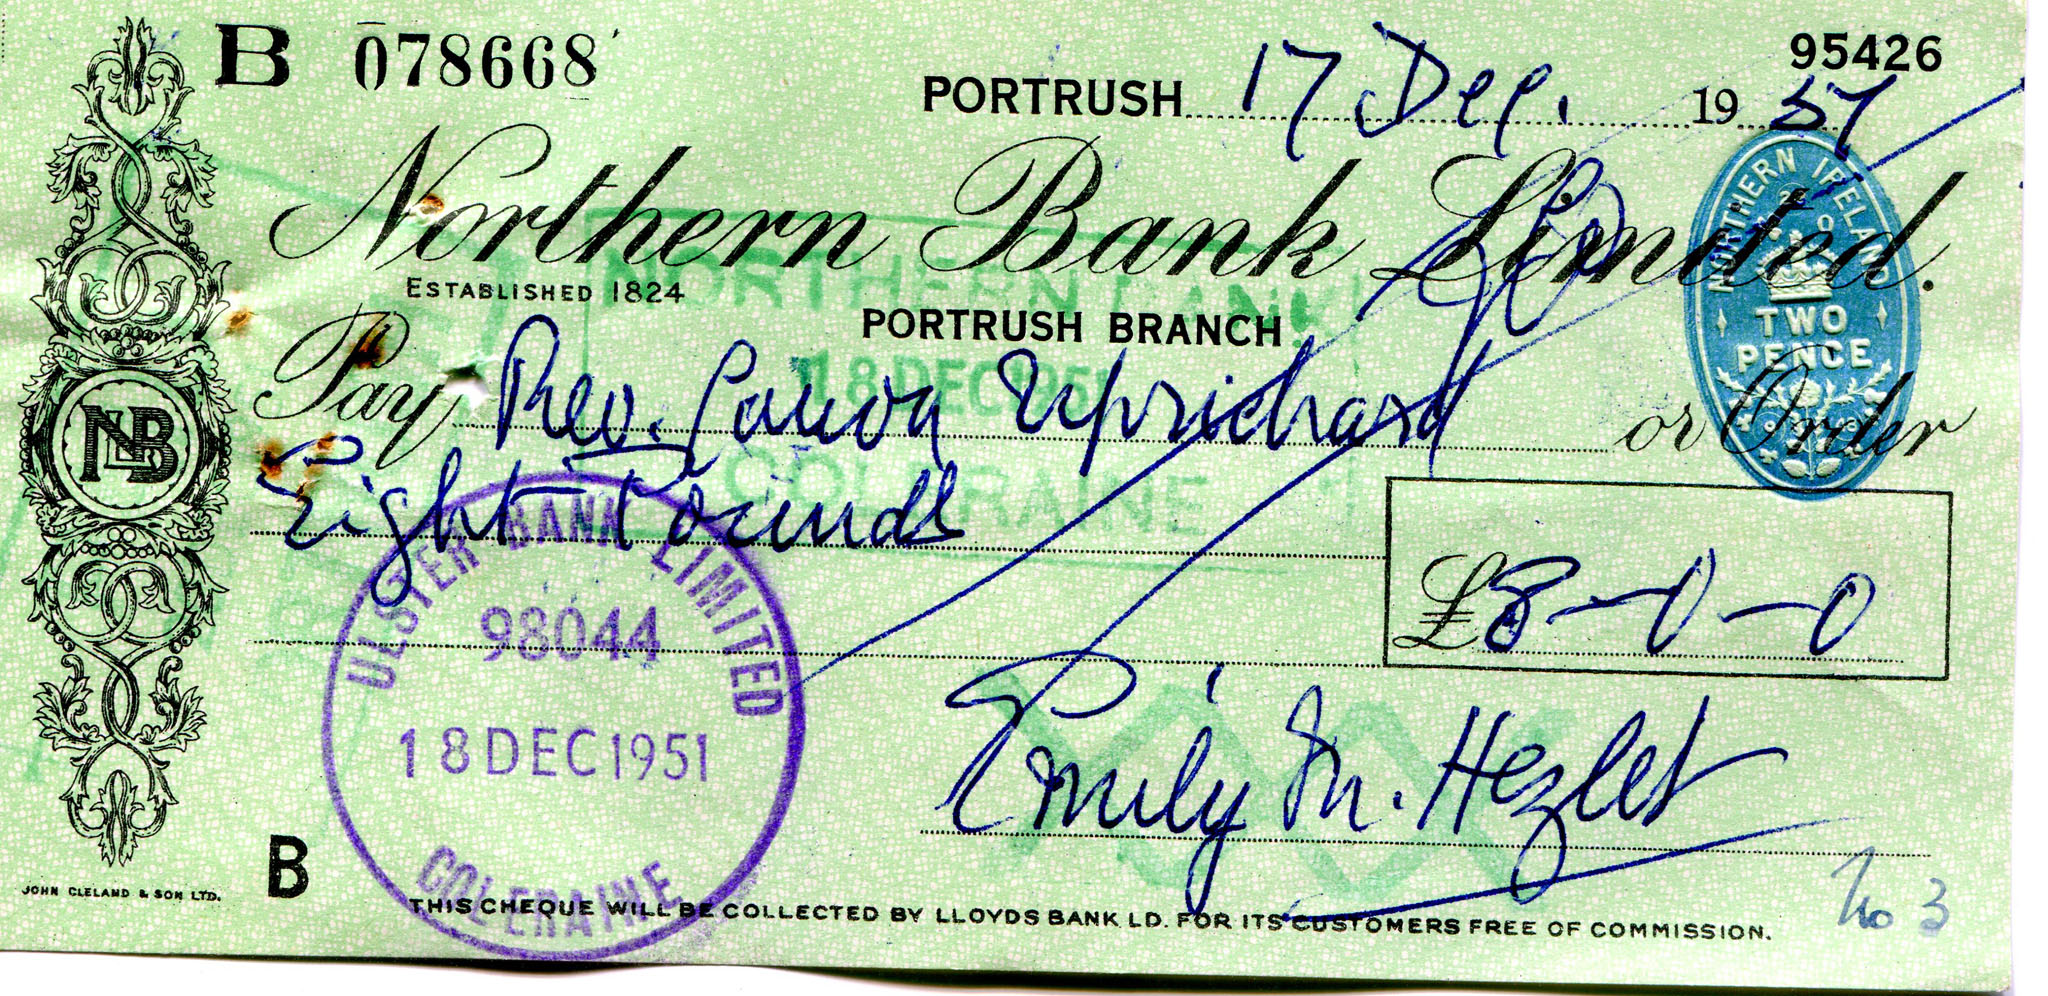 B 078668
95426
PORTRUSH 17 Dec. 19
Northern Bank Limited.
ESTABLISHED 1824
PORTRUSH BRANCH
NORTHERN IRELAND
TWO
PENCE
NORTHERN BANK
18 DEC 1951
COLERAINE
Pay Rev. Canon Uprichard or Order
Eight Pounds
£8-0-0
NLB
ULSTER BANK LIMITED
98044
18 DEC 1951
COLERAINE
Emily M. Hezlet
B
No 3
JOHN CLELAND & SON LTD.
THIS CHEQUE WILL BE COLLECTED BY LLOYDS BANK LD. FOR ITS CUSTOMERS FREE OF COMMISSION.